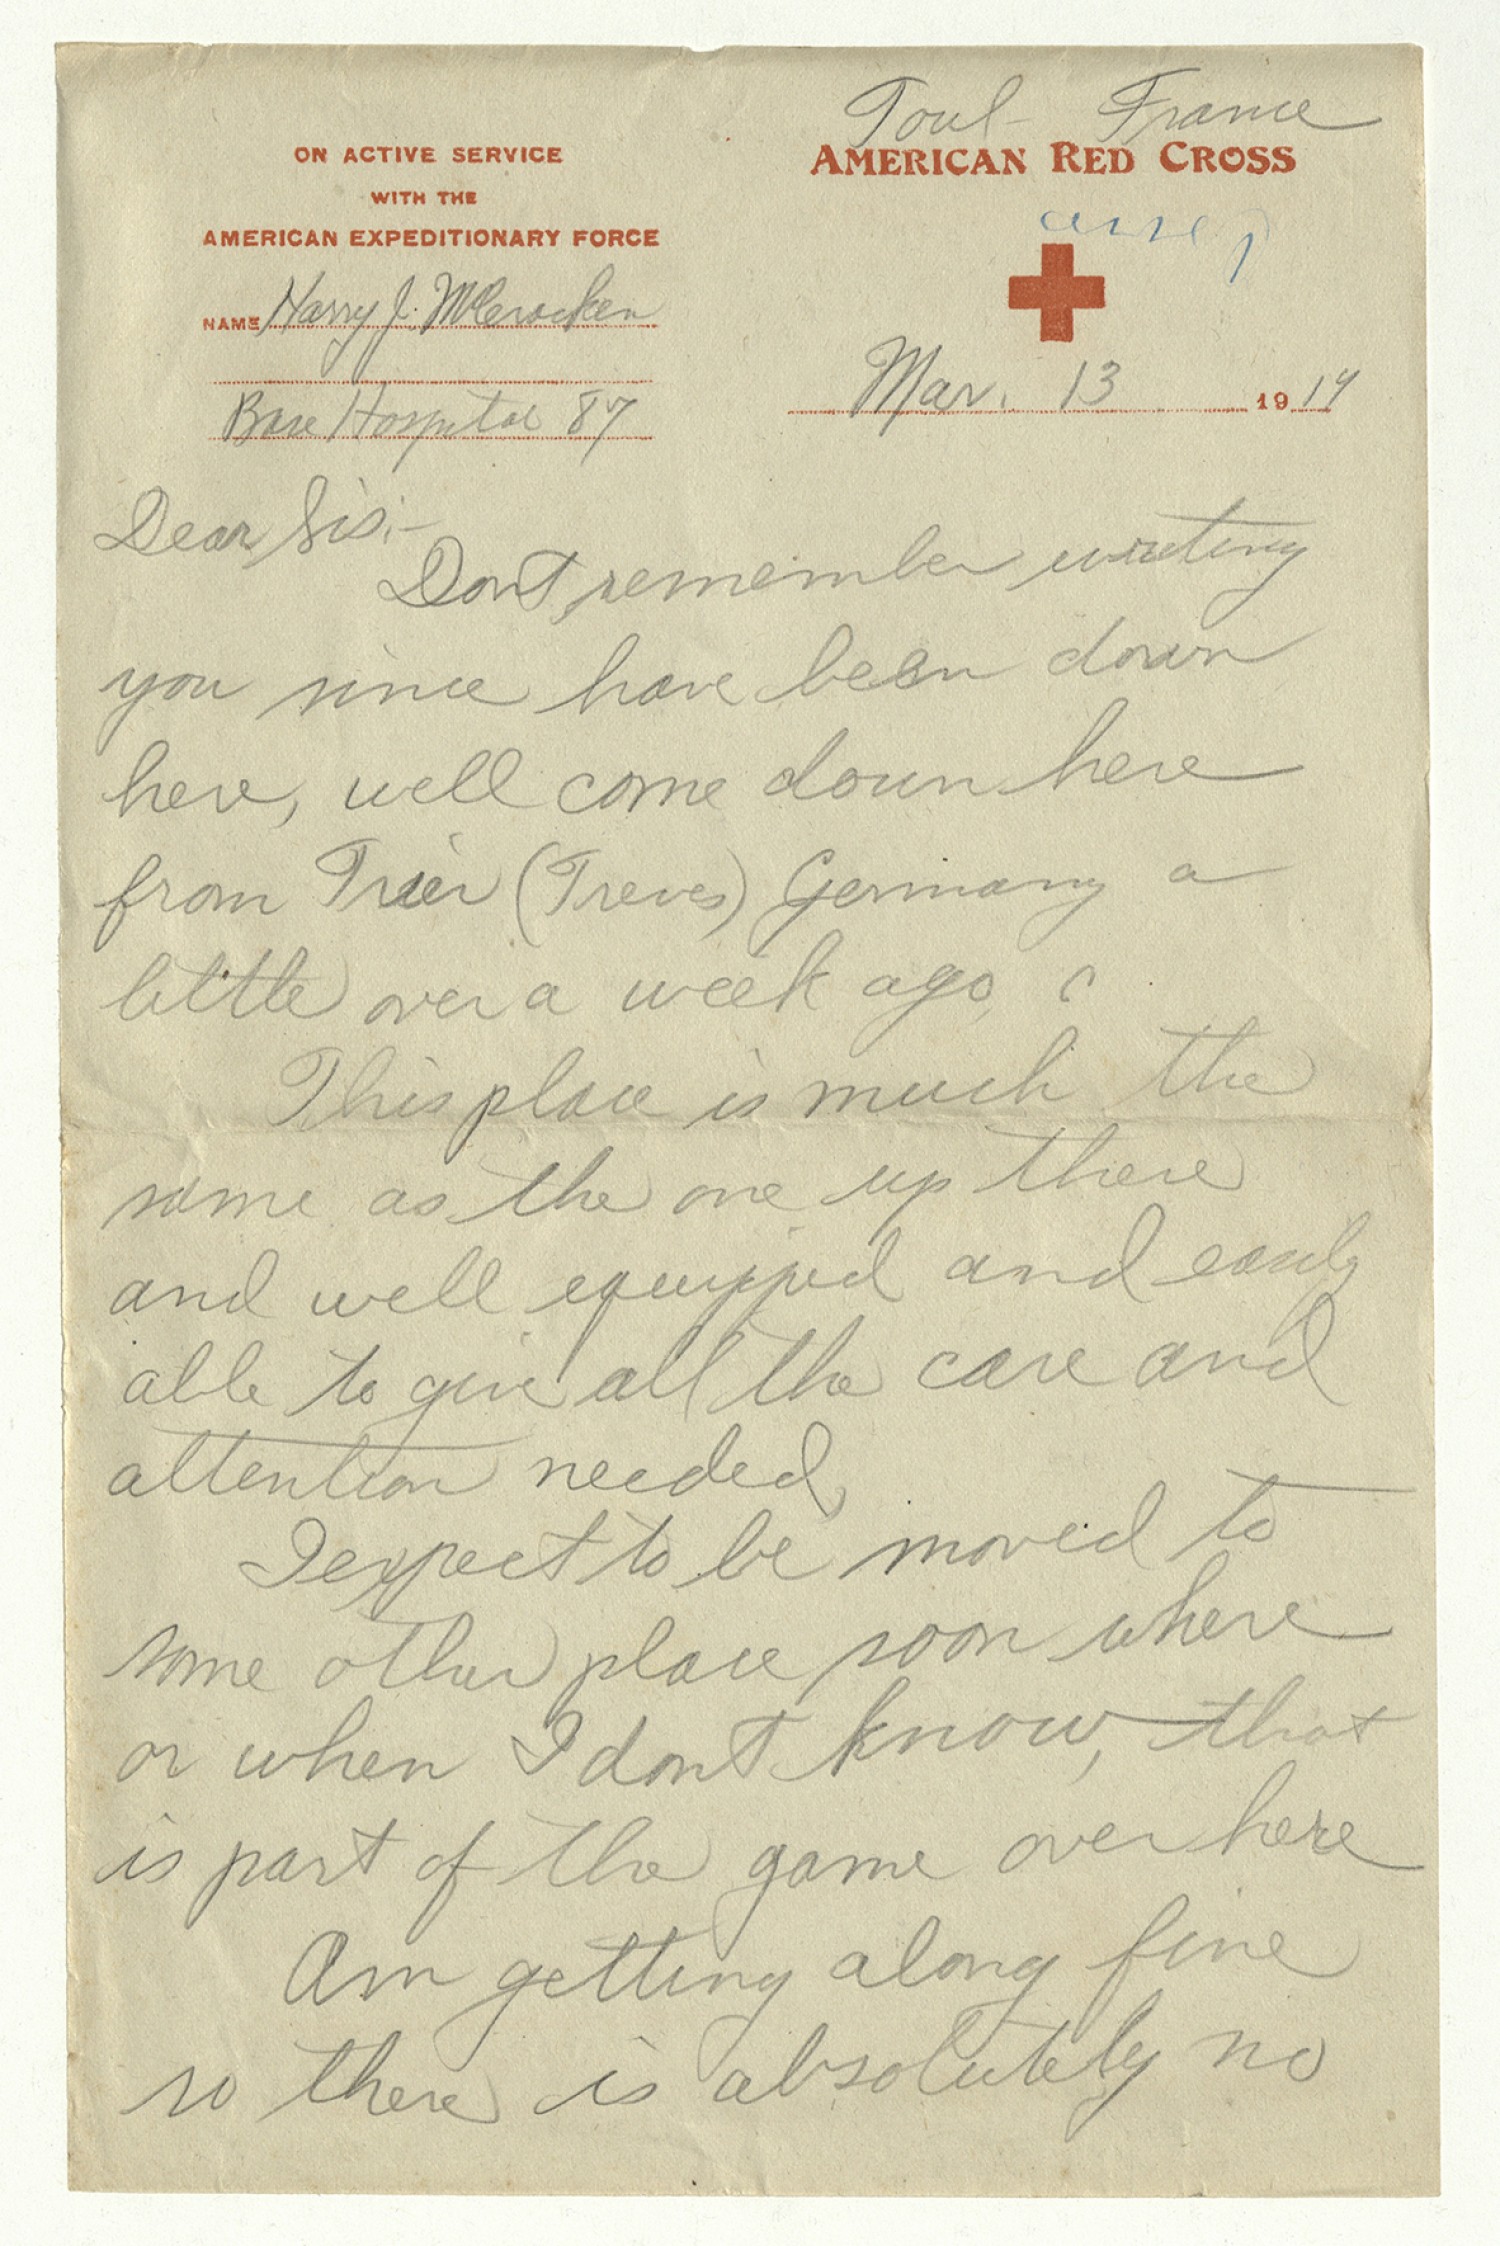 Toul - France
ON ACTIVE SERVICE
WITH THE
AMERICAN EXPEDITIONARY FORCE
AMERICAN RED CROSS
NAME Harry J. McCracken
Base Hospital 87
Mar. 13 1919
Dear Sis:-
Dont remember writing
you since have been down
here, well come down here
from Trier (Treves) Germany a
little over a week ago,
This place is much the
same as the one up there
and well equipped and easily
able to give all the care and
attention needed,
I expect to be moved to
some other place soon where
or when I dont know, that
is part of the game over here
Am getting along fine
so there is absolutely no